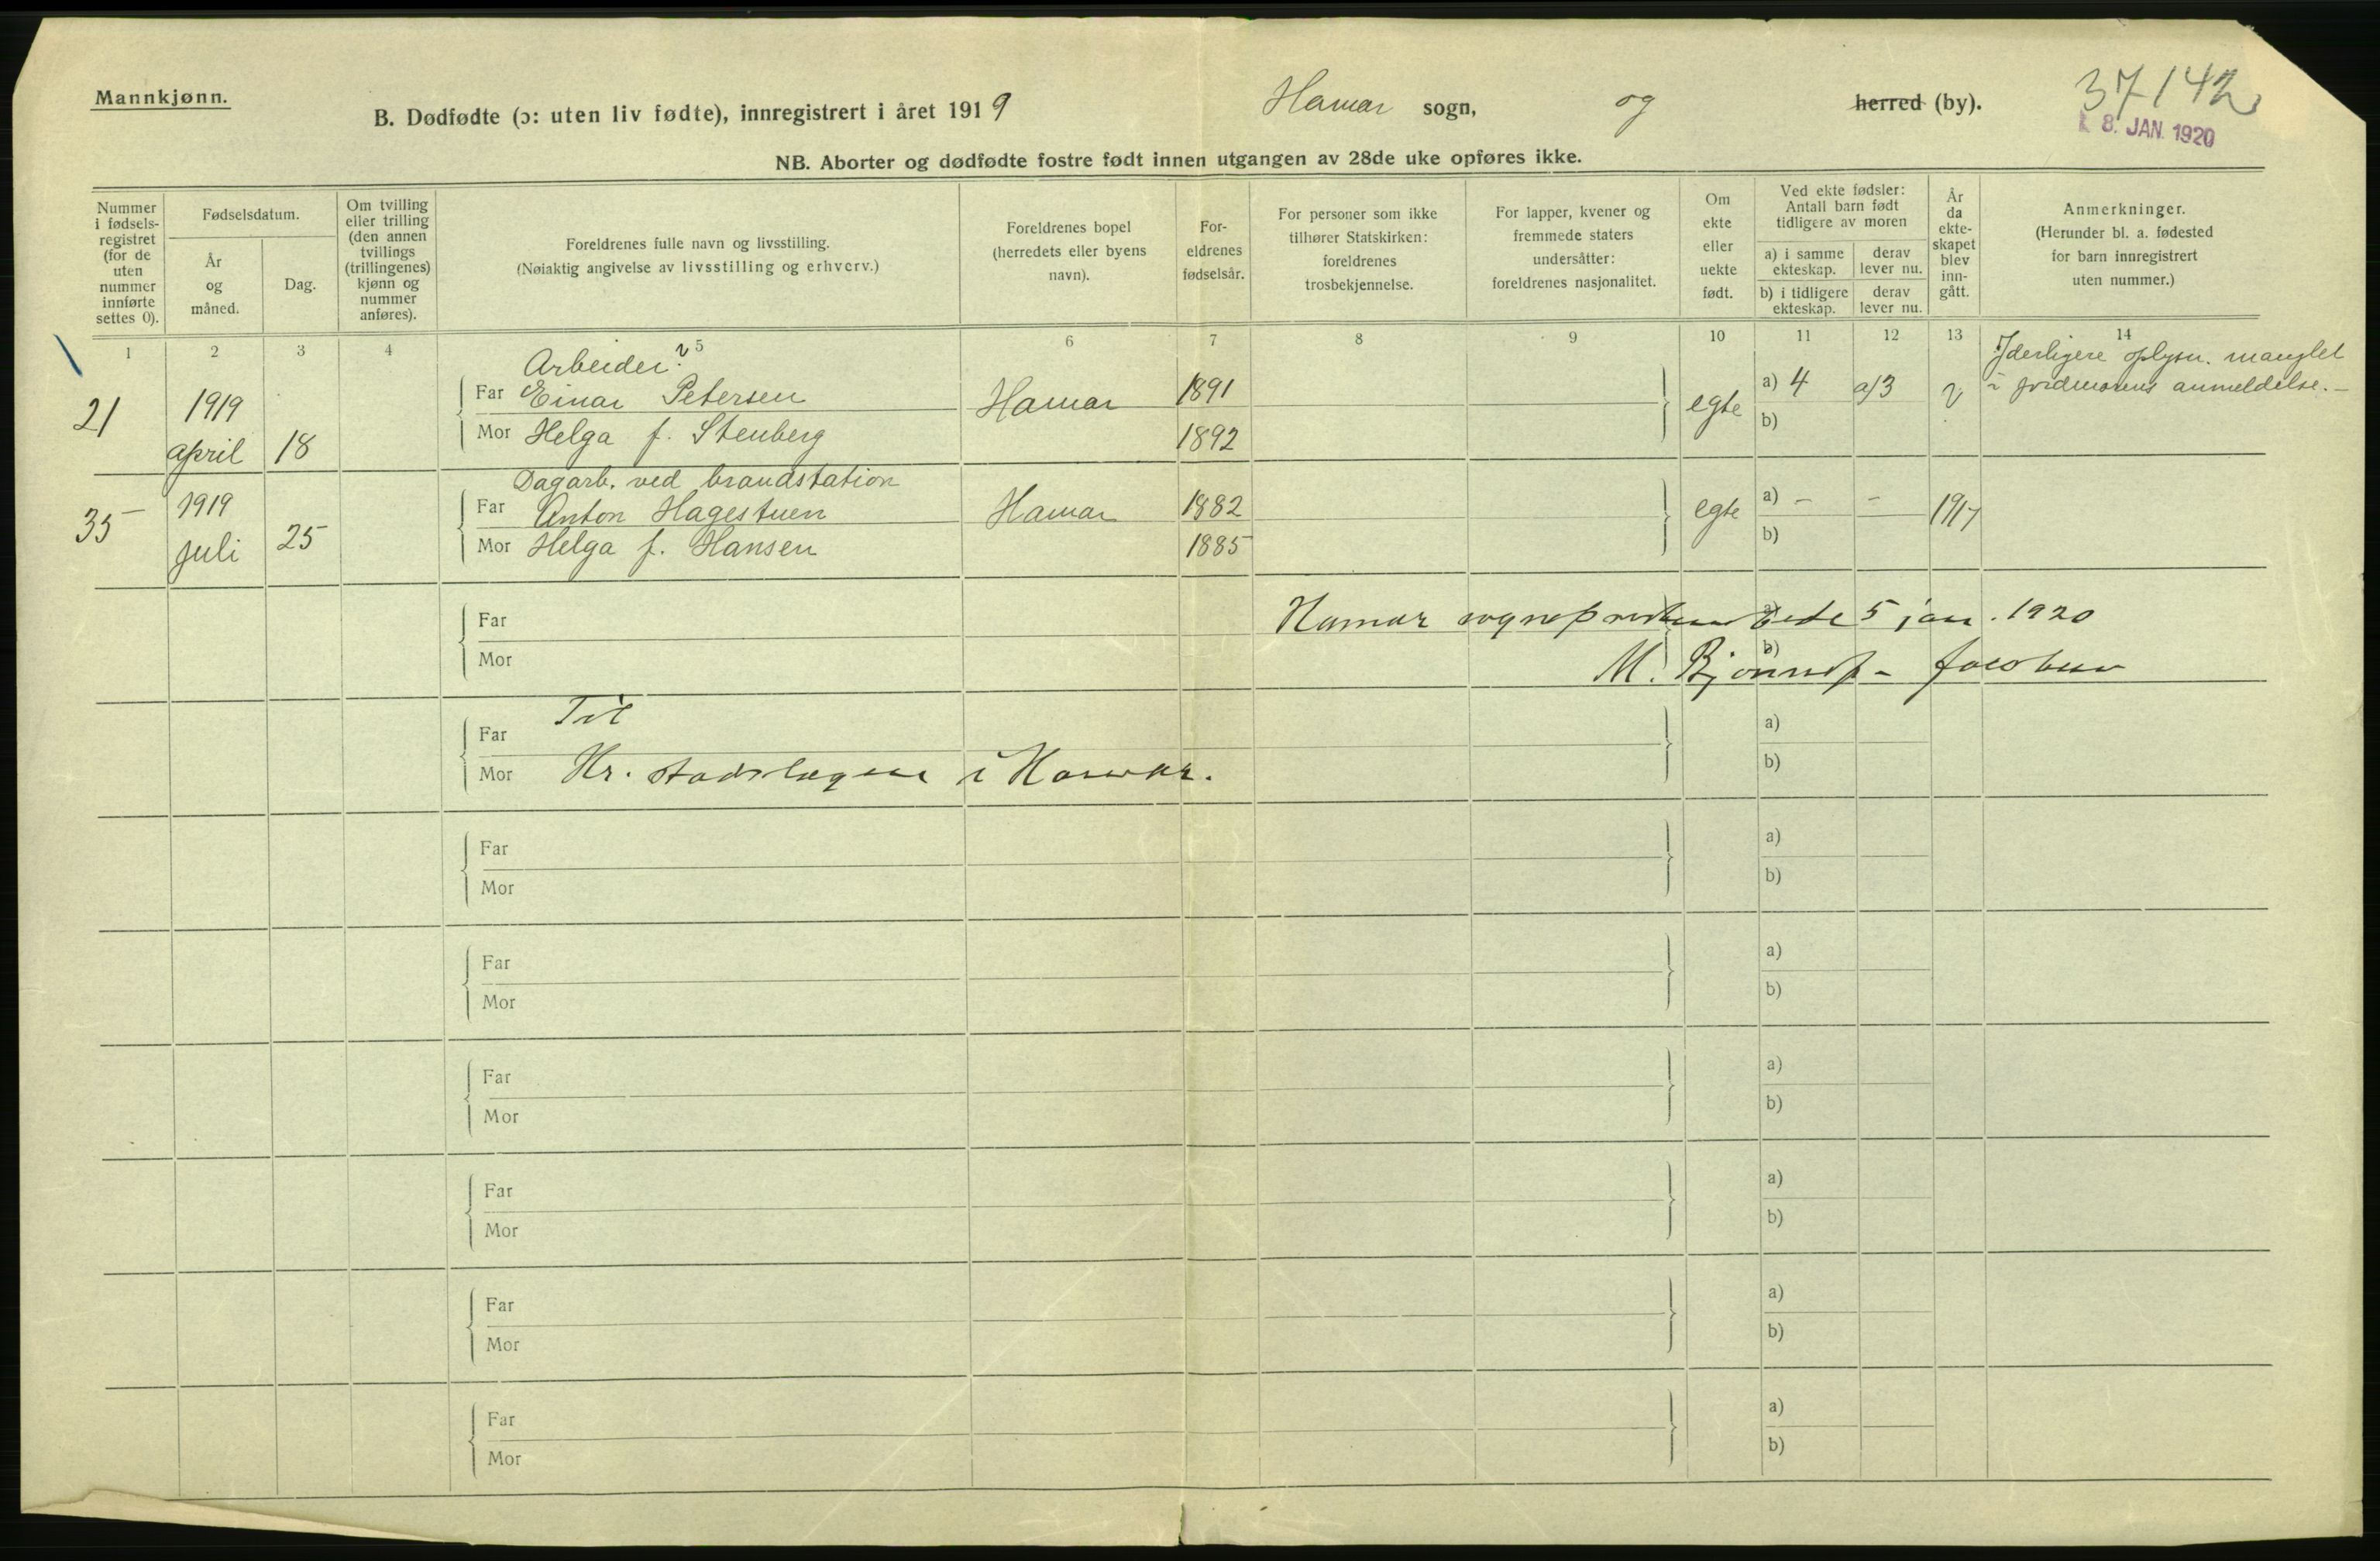 Mannkjønn.
B. Dødfødte (ɔ: uten liv fødte), innregistrert i året 1919 Hamar sogn, og herred (by).
37/142
8. JAN. 1920
NB. Aborter og dødfødte fostre født innen utgangen av 28de uke opføres ikke.
Nummer
i fødsels-
registret
(for de
uten
nummer
innførte
settes 0).
Fødselsdatum.
År
og
måned.
Dag.
Om tvilling
eller trilling
(den annen
tvillings
(trillingenes)
kjønn og
nummer
anføres).
Foreldrenes fulle navn og livsstilling.
(Nøiaktig angivelse av livsstilling og erhverv.)
Foreldrenes bopel
(herredets eller byens
navn).
For-
eldrenes
fødselsår.
For personer som ikke
tilhører Statskirken:
foreldrenes
trosbekjennelse.
For lapper, kvener og
fremmede staters
undersåtter:
foreldrenes nasjonalitet.
Om
ekte
eller
uekte
født.
Ved ekte fødsler:
Antall barn født
tidligere av moren
a) i samme
ekteskap.
derav
lever nu.
b) i tidligere
ekteskap.
derav
lever nu.
År
da
ekte-
skapet
blev
inn-
gått.
Anmerkninger.
(Herunder bl. a. fødested
for barn innregistrert
uten nummer.)
1 2 3 4 5 6 7 8 9 10 11 12 13 14
Yderligere oplysn. manglet
i jordmorens anmeldelse. —
Arbeider?
21 1919 Far Einar Petersen Hamar 1891 egte a) 4 a/3 ?
april 18 Mor Helga f. Stenberg 1892 b)
Dagarb. ved brandstation
35 1919 Far Anton Hagestuen Hamar 1882 egte a) - - 1917
juli 25 Mor Helga f. Hansen 1885 b)
Far Hamar sogneprestembede 5 jan. 1920 a)
Mor M. - Jacobsen b)
Til
Far a)
Mor Hr. stadslægen i Hamar. b)
Far a)
Mor b)
Far a)
Mor b)
Far a)
Mor b)
Far a)
Mor b)
Far a)
Mor b)
Far a)
Mor b)